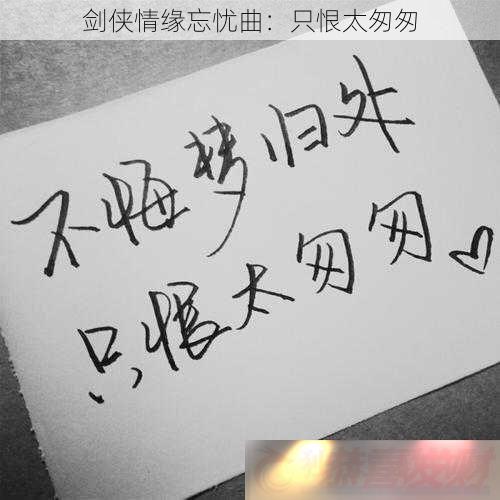 剑侠情缘忘忧曲：只恨太匆匆
不悔梦归处
只恨太匆匆